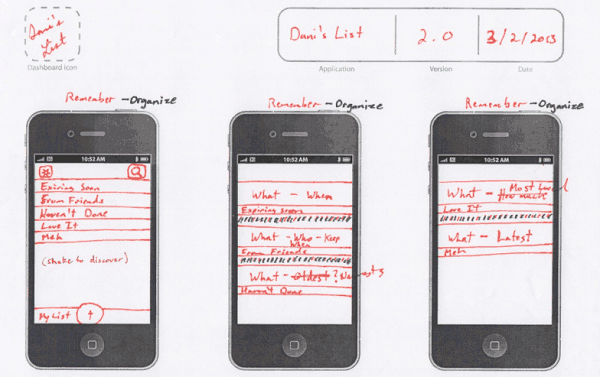 Dani's
List
Dashboard Icon
Dani's List
2.0
3/2/2013
Application
Version
Date
Remember - Organize
10:52 AM
#
Exiring Soon
From Friends
Haven't Done
Love It
Meh
(shake to discover)
My List
Remember - Organize
10:52 AM
What - When
Expiring soon
What - Who - Keep
When
From Friends
What - Oldest ?
Haven't Done
Remember - Organize
10:52 AM
What - Most
How much
Love It
What - Latest
Meh